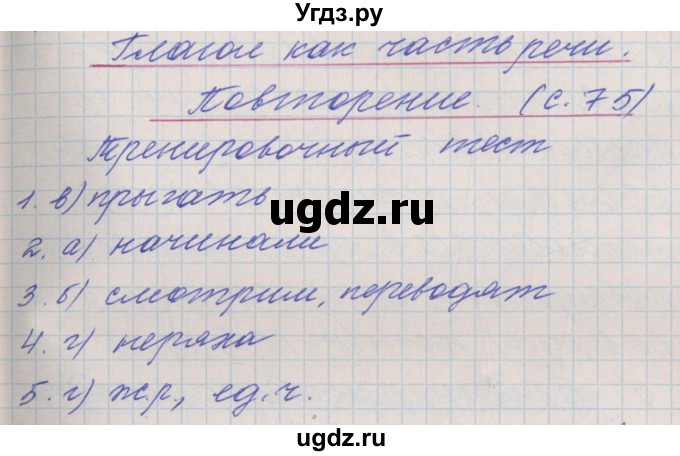 Угдз.ру
Глагол как часть речи.
Повторение. (с. 75)
Тренировочный тест
1. в) прыгать
ugdz.ru
2. а) начинали
3. б) смотрим, переводят
4. г) неряха
5. г) ж.р., ед.ч.
ugdz.ru